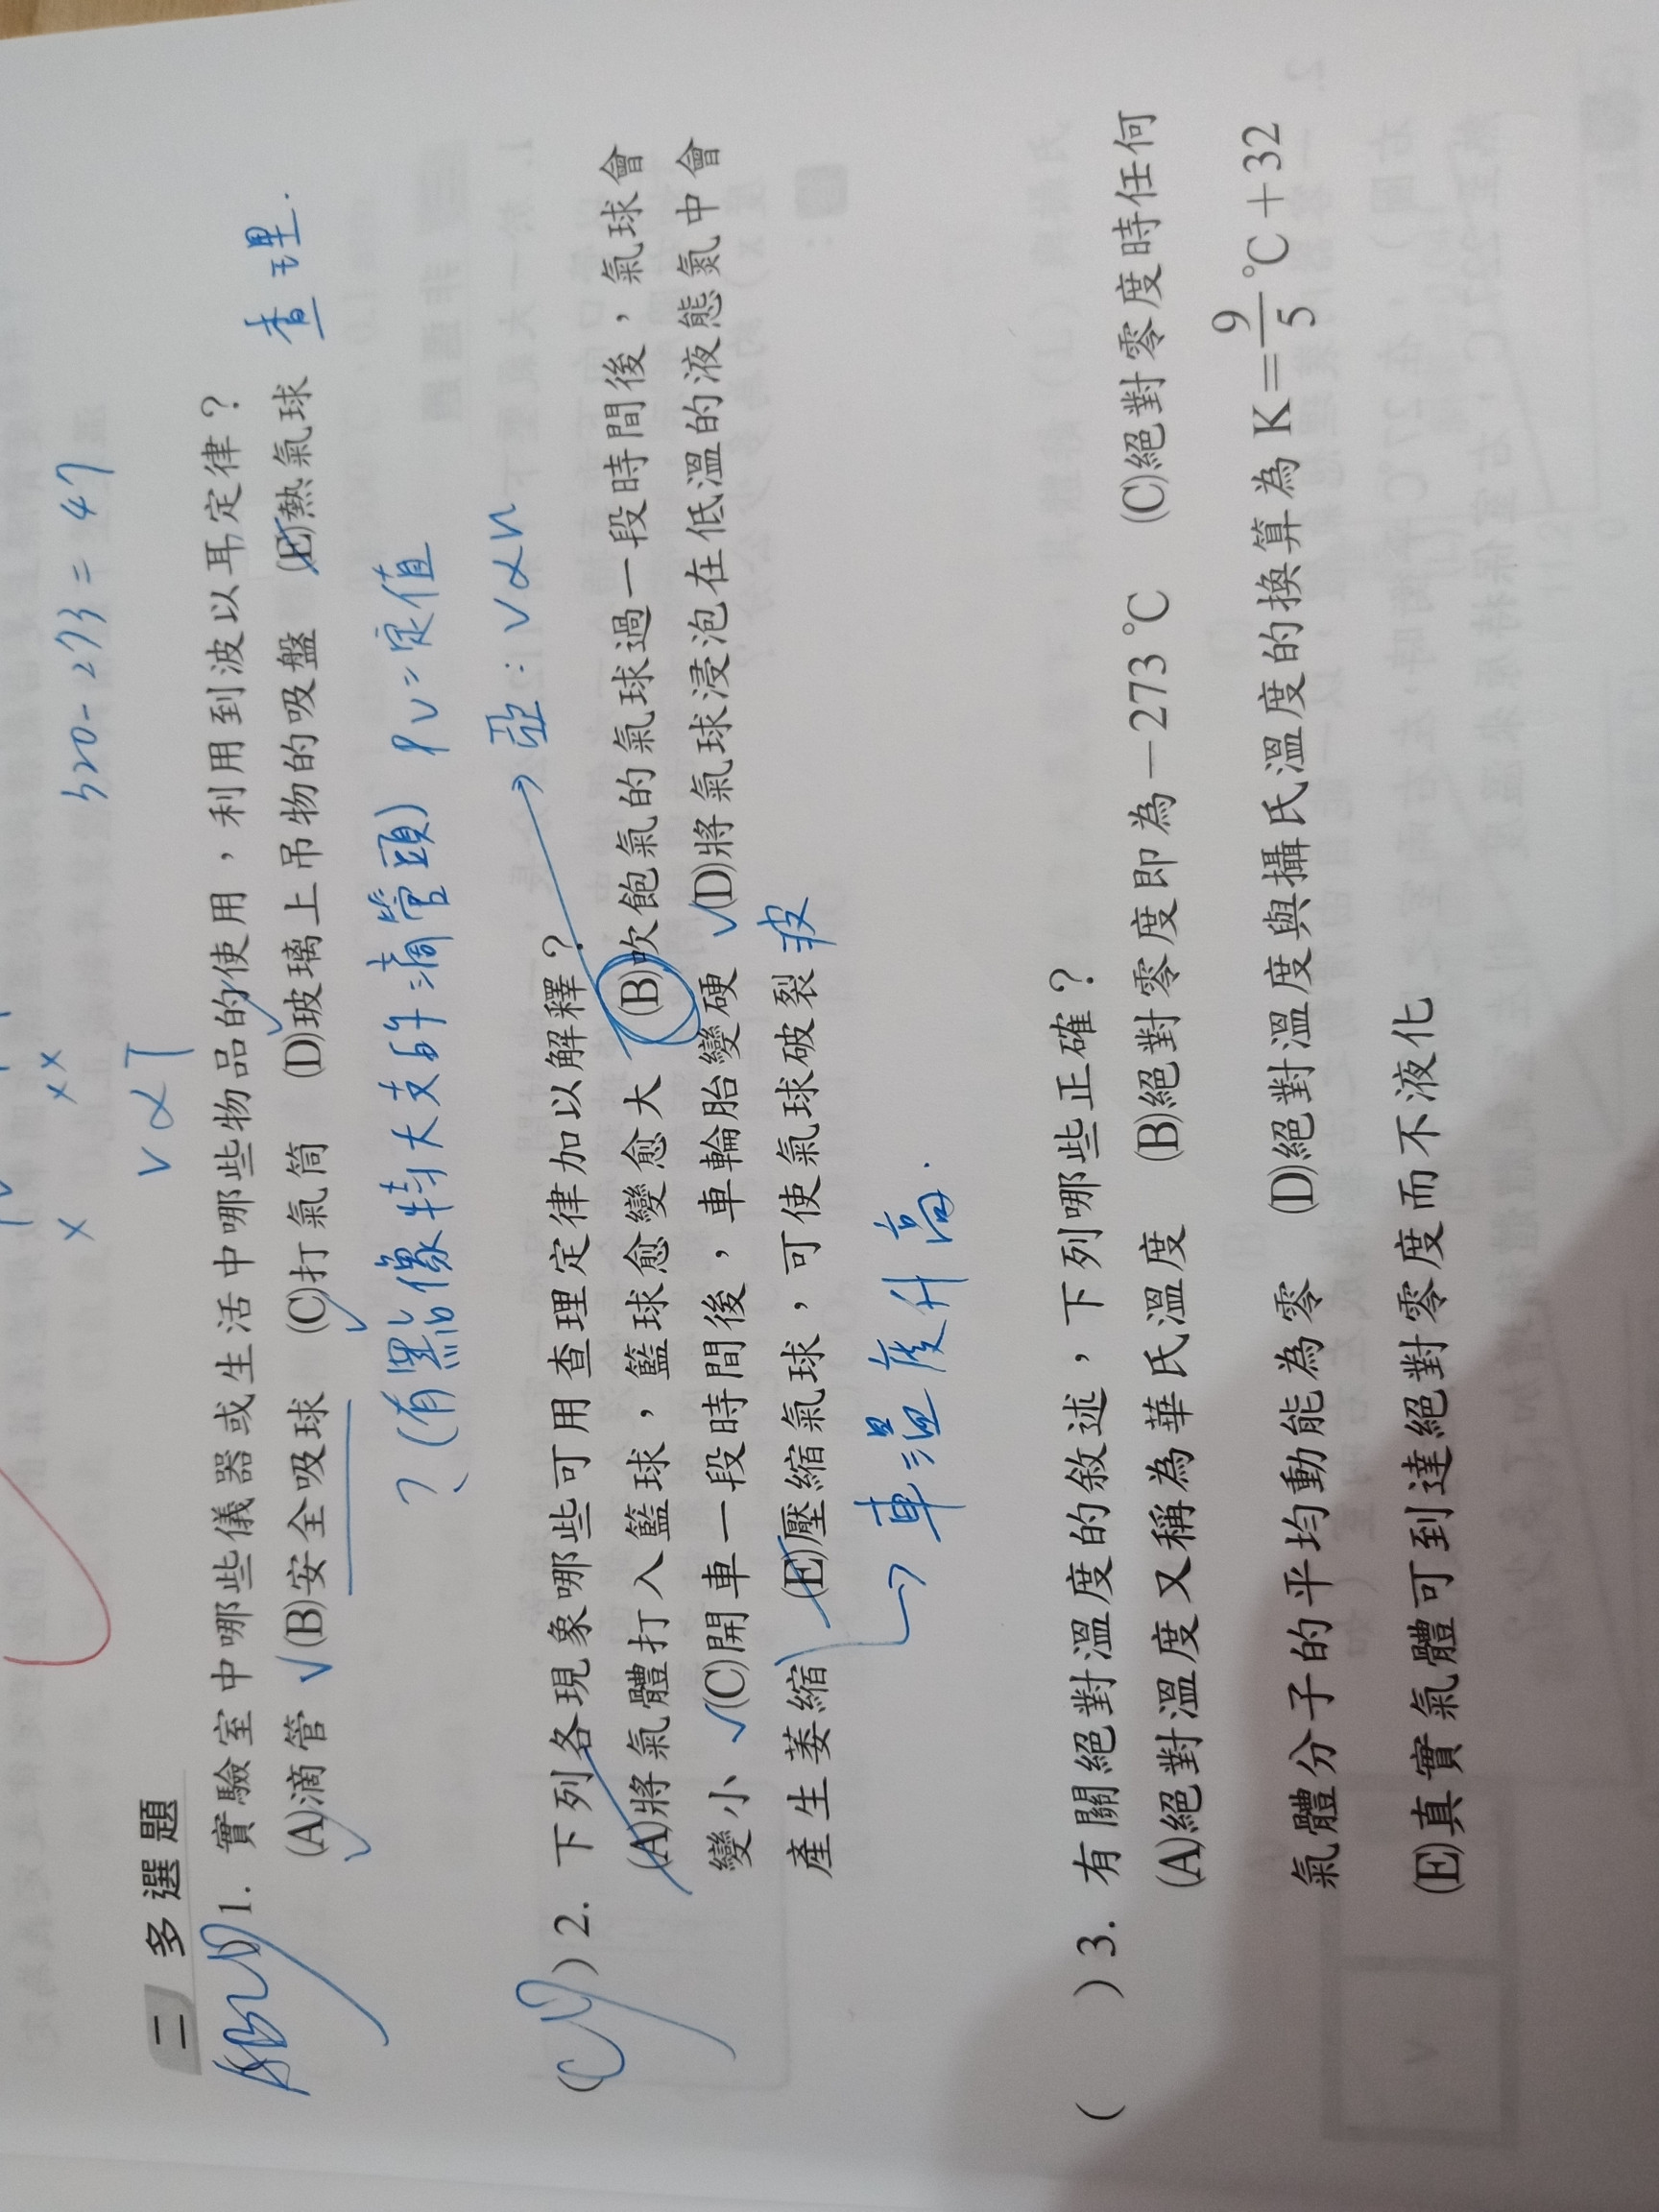 320-273=47
x xx
V∝T
二 多選題
(ABCD)1. 實驗室中哪些儀器或生活中哪些物品的使用，利用到波以耳定律？
(A)滴管 ✓(B)安全吸球 (C)打氣筒 (D)玻璃上吊物的吸盤 (E)熱氣球 查理.
？(有點像特大支的滴管頭) PV=定值
→ 亞：V∝n
(CD)2. 下列各現象哪些可用查理定律加以解釋？
(A)將氣體打入籃球，籃球愈變愈大 (B)吹飽氣的氣球過一段時間後，氣球會
變小 ✓(C)開車一段時間後，車輪胎變硬 ✓(D)將氣球浸泡在低溫的液態氮中會
產生萎縮 (E)壓縮氣球，可使氣球破裂 波
→車溫度升高.
( )3. 有關絕對溫度的敘述，下列哪些正確？
(A)絕對溫度又稱為華氏溫度 (B)絕對零度即為－273℃ (C)絕對零度時任何
氣體分子的平均動能為零 (D)絕對溫度與攝氏溫度的換算為 K=9/5℃+32
(E)真實氣體可到達絕對零度而不液化